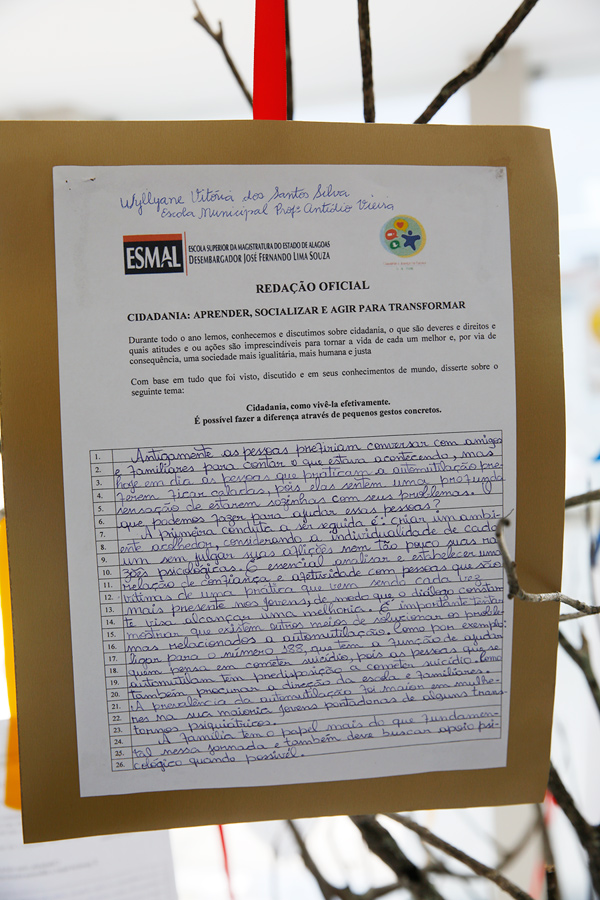 Wyllyane Vitória dos Santos Silva
Escola Municipal Profº Antídio Vieira
ESMAL
ESCOLA SUPERIOR DA MAGISTRATURA DO ESTADO DE ALAGOAS
DESEMBARGADOR JOSÉ FERNANDO LIMA SOUZA
REDAÇÃO OFICIAL
CIDADANIA: APRENDER, SOCIALIZAR E AGIR PARA TRANSFORMAR
Durante todo o ano lemos, conhecemos e discutimos sobre cidadania, o que são deveres e direitos e
quais atitudes e ou ações são imprescindíveis para tornar a vida de cada um melhor e, por via de
consequência, uma sociedade mais igualitária, mais humana e justa
Com base em tudo que foi visto, discutido e em seus conhecimentos de mundo, disserte sobre o
seguinte tema:
Cidadania, como vivê-la efetivamente.
É possível fazer a diferença através de pequenos gestos concretos.
1. Antigamente as pessoas prefiriam conversar com amigos
2. e familiares para contar o que estava acontecendo, mas
3. hoje em dia as pessoas que praticam a automutilação pre-
4. ferem ficar caladas, pois elas sentem uma profunda
5. sensação de estarem sozinhas com seus problemas. O
6. que podemos fazer para ajudar essas pessoas?
7. A primeira conduta a ser seguida é: criar um ambi-
8. ente acolhedor, considerando a individualidade de cada
9. um sem julgar suas aflições nem tão pouco suas ra
10. zões psicológicas. É essencial analisar e estabelecer uma
11. relação de confiança e afetividade com pessoas que são
12. vítimas de uma pratica que vem sendo cada vez
13. mais presente nos jovens, de modo que o diálogo constan-
14. te visa alcançar uma melhoria. É importante tentar
15. mostrar que existem outros meios de solucionar os proble-
16. mas relacionados a automutilação. Como por exemplo:
17. ligar para o número 188, que tem a função de ajudar
18. quem pensa em cometer suicídio, pois as pessoas que se
19. automutilam tem predisposição a cometer suicídio. Como
20. também procurar a direção da escola e familiares.
21. A prevalência da automutilação foi maior em mulhe-
22. res na sua maioria jovens portadoras de alguns trans-
23. tornos psiquiátricos.
24. A família tem o papel mais do que fundamen-
25. tal nessa jornada e também deve buscar apoio psi-
26. cológico quando possível.